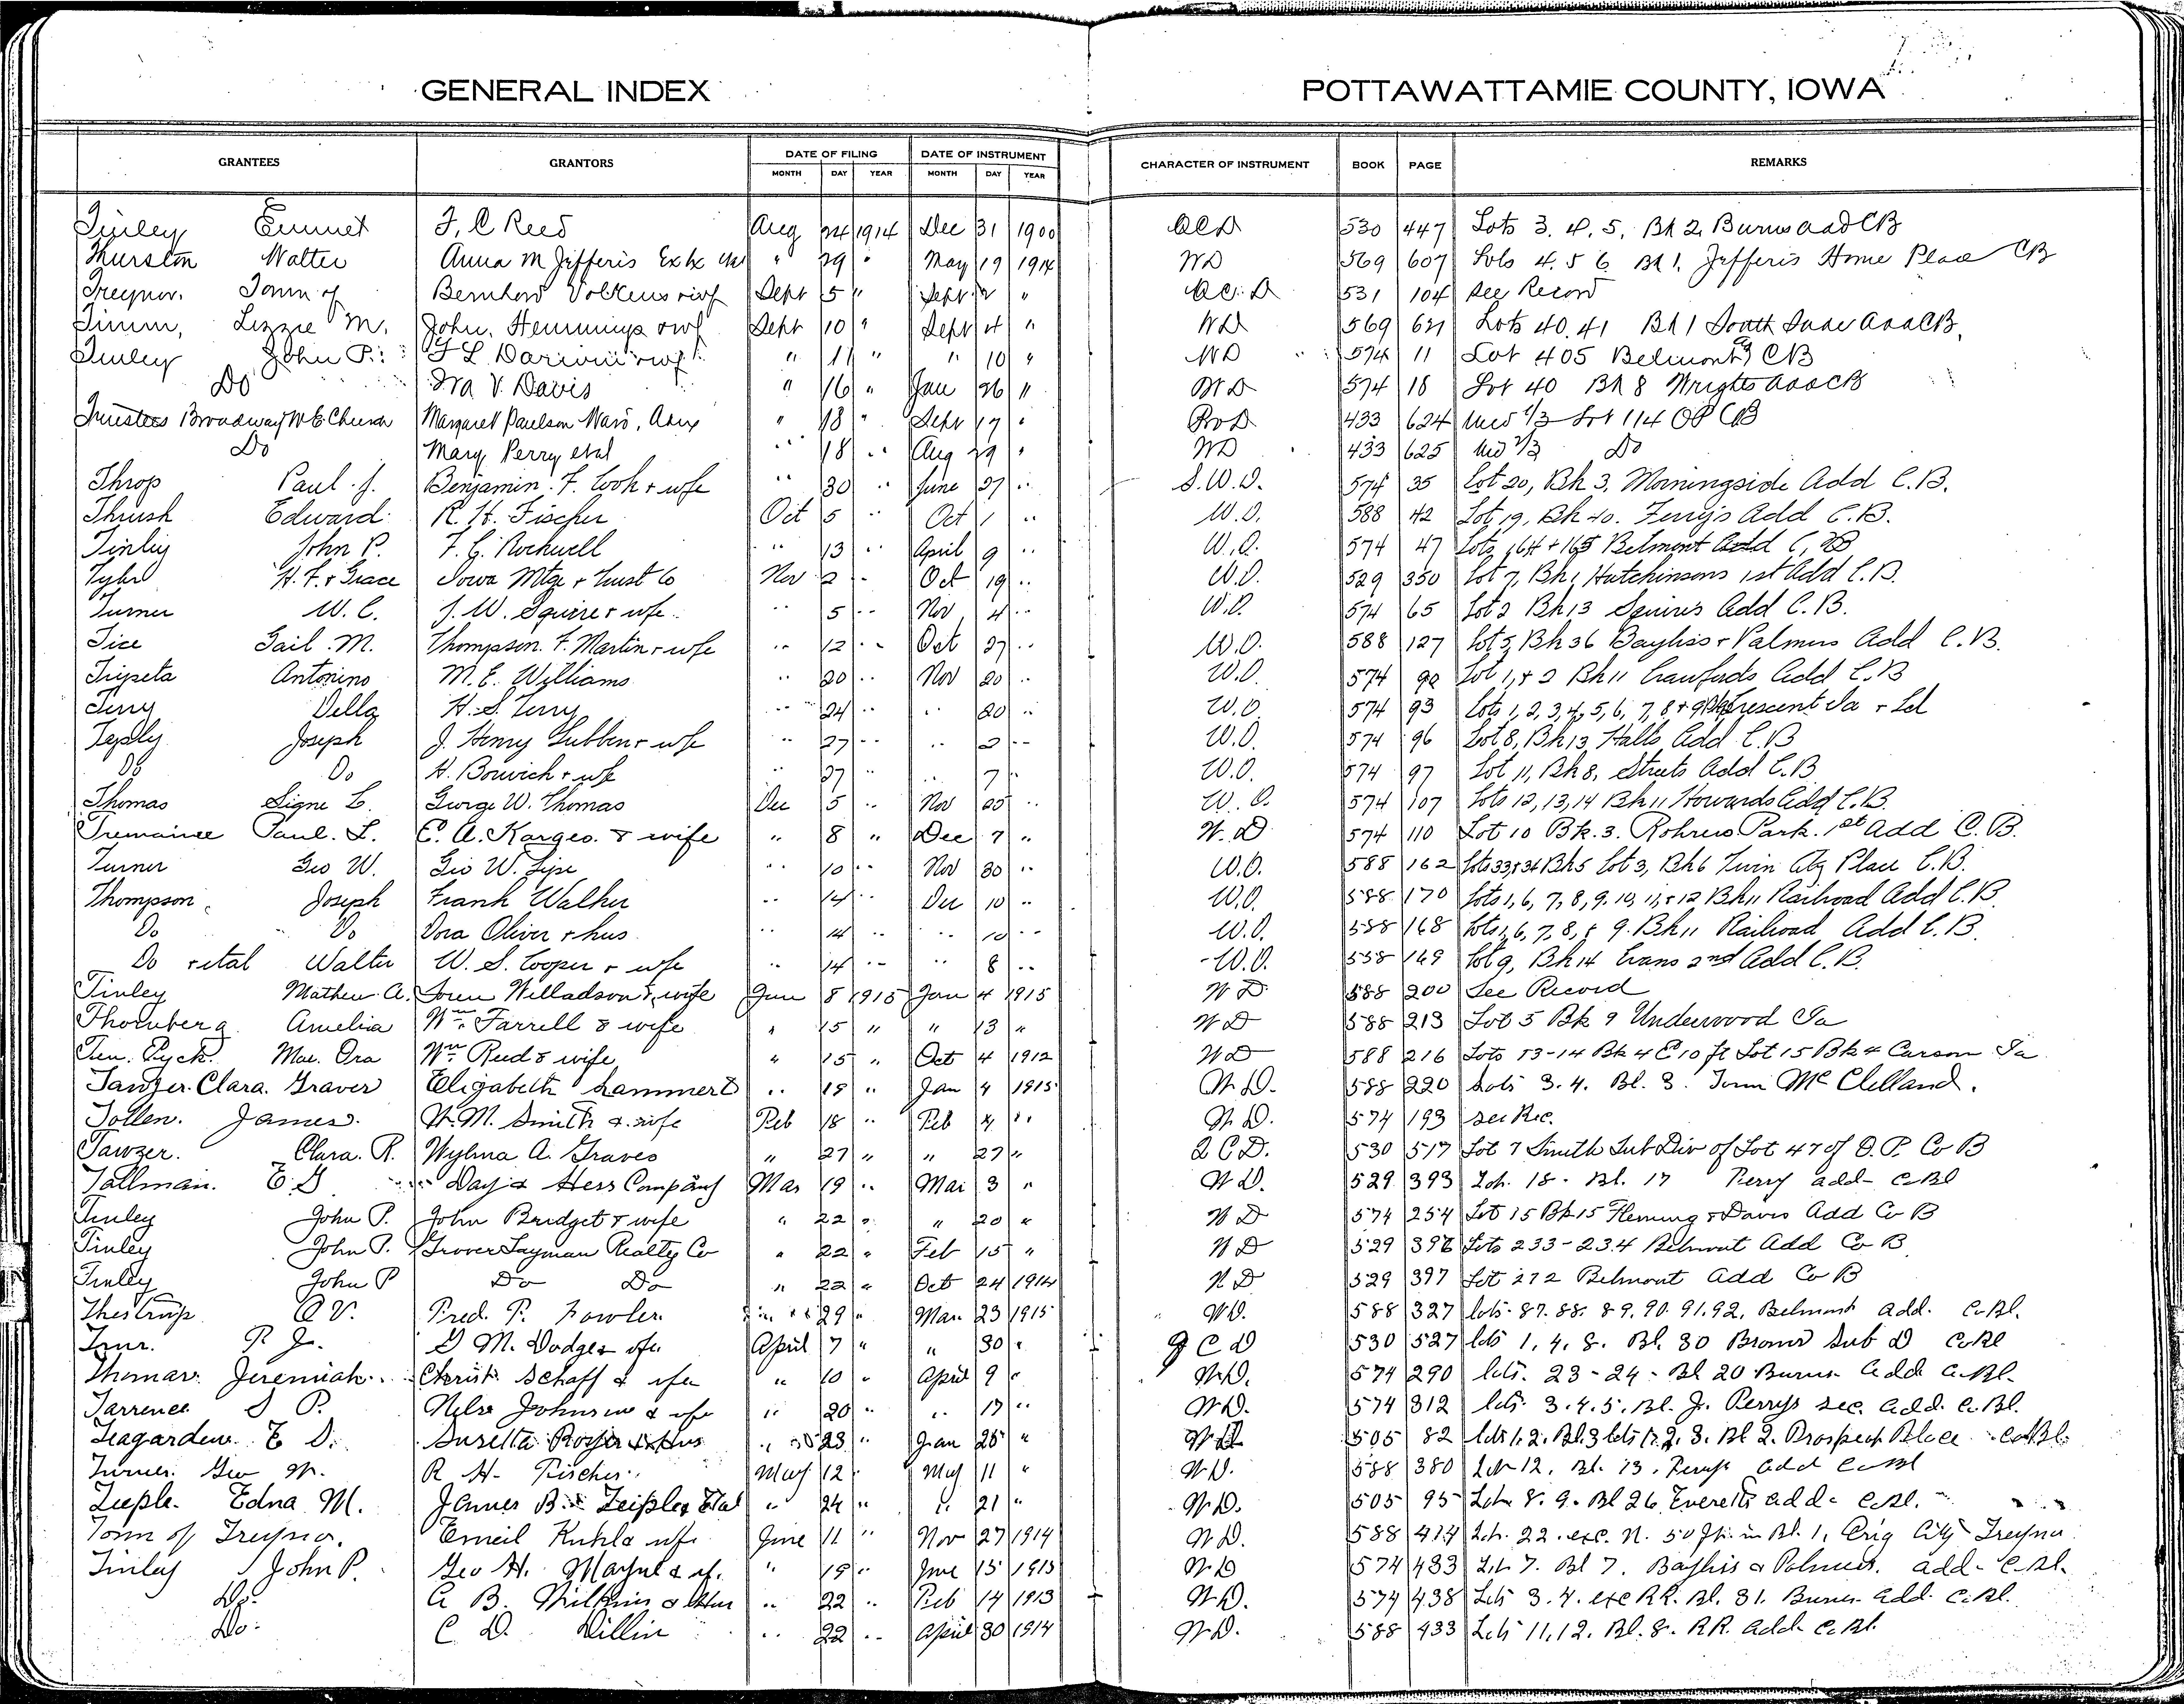 GENERAL INDEX
POTTAWATTAMIE COUNTY, IOWA
GRANTEES GRANTORS DATE OF FILING DATE OF INSTRUMENT CHARACTER OF INSTRUMENT BOOK PAGE REMARKS
MONTH DAY YEAR MONTH DAY YEAR
Tinley Emmet F, C Reed Aug 24 1914 Dec 31 1900 QCD 530 447 Lots 3, 4, 5, Bk 2, Burns add CB
Thurston Walter Anna M Jefferis Extx " 29 " May 19 1914 WD 569 607 Lots 4. 5 6 Bk 1, Jefferis Home Place CB
Treynor, Town of Bernhard Volkens Sept 5 " Sept 2 " QC. D 531 104 See Record
Timm, Lizzie M. John. Hemmings Sept 10 " Sept 4 " WD 569 Lots 40, 41 Bk 1 South Side Add CB,
Tinley John P. F L " 11 " " 10 " WD 574 11 Lot 405 Belmont CB
Do Ira V. Davis " 16 " Jan 26 " WD 574 18 Lot 40 Bk 8 Wrights add CB
Trustees Broadway M E Church Margaret Paulson Ward, " 18 " Sept 17 " 433 624 Und 1/3 Lot 114 OP CB
Do Mary Perry etal " 18 " Aug 29 " WD 433 625 Und 2/3 Do
Throp Paul J. Benjamin F. Cook + wife " 30 " June 27 " S. W. D. 574 35 Lot 20, Bk 3, Morningside Add C. B.
Thrush Edward R. H. Fischer Oct 5 " Oct 1 " W. D. 588 42 Lot 19, Bk 40. Ferrys Add C. B.
Tinley John P. F. C. Rockwell " 13 " April 9 " W. D. 574 47 Lots 164 + 165 Belmont Add C, B
Tyler H. F. + Grace Iowa Mtge + Trust Co Nov 2 " Oct 19 " W. D. 529 350 Lot 7, Bk 1 Hutchinsons 1st Add C. B.
Turner W. C. J. W. Squire + wife " 5 " Nov 4 " W. D. 574 65 Lot 2 Bk 13 Squires Add C. B.
Tice Gail M. Thompson. F. Martin + wife " 12 " Oct 27 " W. D. 588 127 Lot 5, Bk 36 Bayliss + Palmers Add C. B.
Tripeta Antonino M. E. Williams " 20 " Nov 20 " W. D. 574 90 Lot 1, + 2 Bk 11 Crawfords Add C. B
Terry Della H. S. Terry " 24 " " 20 " W. D. 574 93 Lots 1, 2, 3, 4, 5, 6, 7, 8 + 9 Crescent Ia + Ld
Joseph J. Henry Lubben + wife " 27 " " 2 " W. D. 574 96 Lot 8, Bk 13 Halls Add C. B
Do Do H. Borwick + wife " 27 " " 7 " W. D. 574 97 Lot 11, Bk 8, Streets Add C. B
Thomas Signe L. George W. Thomas Dec 5 " Nov 25 " W. D. 574 107 Lots 12, 13, 14 Bk 11 Howards Add C. B.
Tremaine Paul. L. E. A. Karges. & wife " 8 " Dec 7 " W. D 574 110 Lot 10 Bk. 3. Rohrers Park. 1st Add C. B.
Turner Geo W. Geo W. Lipe " 10 " Nov 30 " W. D. 588 162 Lots 33, + 34 Bk 5 Lot 3, Bk 6 Twin City Place C. B.
Thompson Joseph Frank Walker " 14 " Dec 10 " W. D. 588 170 Lots 1, 6, 7, 8, 9, 10, 11, + 12 Bk 11 Railroad Add C. B.
Do Do Dora Oliver + hus " 14 " " 10 " W. D. 588 168 Lots 1, 6, 7, 8, + 9. Bk 11 Railroad Add C. B.
Do + etal Walter W. S. Cooper + wife " 14 " " 8 " W. D. 588 169 Lot 9, Bk 14 Evans 2nd Add C. B.
Tinley Mathew A. Soren Willadson & wife Jan 8 1915 Jan 4 1915 W D 588 200 See Record
Thornberg Amelia Wm. Farrell & wife " 15 " " 13 " W D 588 213 Lot 5 Bk 9 Underwood Ia
Ten Eyck. Mae. Ora Wm Reed & wife " 15 " Oct 4 1912 W D 588 216 Lots 13-14 Bk 4 E 10 ft Lot 15 Bk 4 Carson Ia
Tawzer Clara. Graver Elizabeth Lammert " 19 " Jan 4 1915 W. D. 588 220 Lots 3. 4. Bl. 3. Town Mc Clelland.
Tollen. James. W. M. Smith & wife Feb 18 " Feb 4 " W. D. 574 193 see Rec.
Tawzer. Clara. R. Wylma A. Graves " 27 " " 27 " Q C D. 530 517 Lot 7 Smith Sub Div of Lot 47 of O. P. Co B
Tallman. E. G Day & Hess Company Mar 19 " Mar 3 " W D. 529 393 Lot. 18. Bl. 17 Perry add- C Bl
Tinley John P. John Bridget & wife " 22 " " 20 " W D 574 254 Lot 15 Bk 15 Fleming & Davis Add Co B
Tinley John P. Grover Layman Realty Co " 22 " Feb 15 " W D 529 396 Lots 233-234 Belmont Add Co B
Tinley John P Do Do " 22 " Oct 24 1914 W D 529 397 Lot 272 Belmont Add Co B
Thestrup Q V. Fred. P. Fowler 29 " Mar 23 1915 WD. 588 327 lots. 87. 88. 89. 90. 91. 92. Belmont add. Co Bl.
P. J. G M. Dodge & wfe April 7 " " 30 " Q C D 530 527 lots 1, 4, 8. Bl. 30 Browns Sub D Co Bl
Thomas Jeremiah Christ. Schaff & wfe " 10 " April 9 " W. D. 574 290 lots. 23-24- Bl 20 Burns Add C. Bl.
Tarrence S P. Nels Johnson & wfe " 20 " " 17 " W. D. 574 312 lots 3. 4. 5. Bl. J. Perrys sec. add. C. Bl.
Teagarden E D. Susetta & Hus " 23 " Jan 25 " W D 505 82 lots 1. 2. Bl. 3 lots 1. 2. 3. Bl 2. Prospect Place Co Bl.
Turner. Geo W. R H. Fischer. May 12 " May 11 " W. D. 588 380 Lot 12. Bl. 13. Ferrys add C. Bl
Edna M. James B. Etal " 24 " " 21 " W. D. 505 95 Lots 8. 9. Bl 26 Everetts add. C. Bl.
Town of Treynor. Emeil Kuhl & wfe June 11 " Nov 27 1914 W. D. 588 414 Lot. 22. exc. N. 50 ft. in Bl. 1, Orig City Treynor
Tinley John P. Geo H. Mayne & wf. " 19 " June 15 1915 W. D 574 433 Lot 7. Bl 7. Bayliss & Palmers. add- C Bl.
Do. A B. & Hus " 22 " Feb 14 1913 W. D. 574 438 Lots 3. 4. exc RR. Bl. 31. Burns. add. C. Bl.
Do. C. D. Dillin " 22 " April 30 1914 W. D. 588 433 Lots 11, 12. Bl. 8. RR. add. C. Bl.